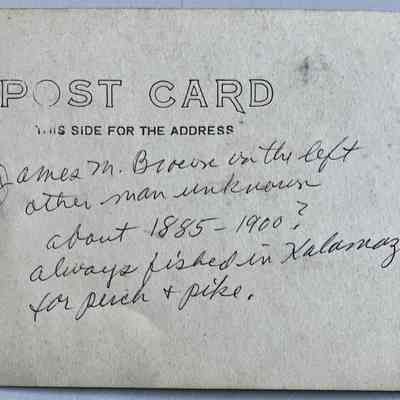 POST CARD
THIS SIDE FOR THE ADDRESS
James M. Brown on the left
other man unknown
about 1885-1900?
always fished in Kalamaz
for perch + pike.